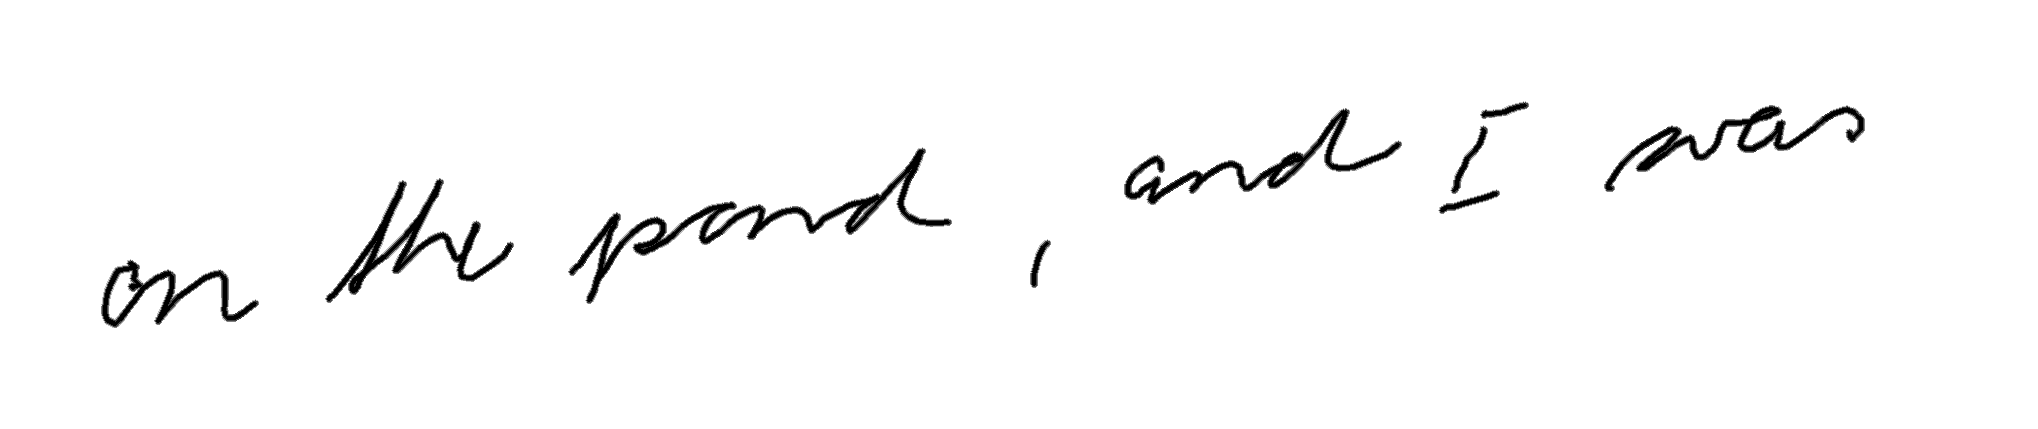 on the pond, and I was